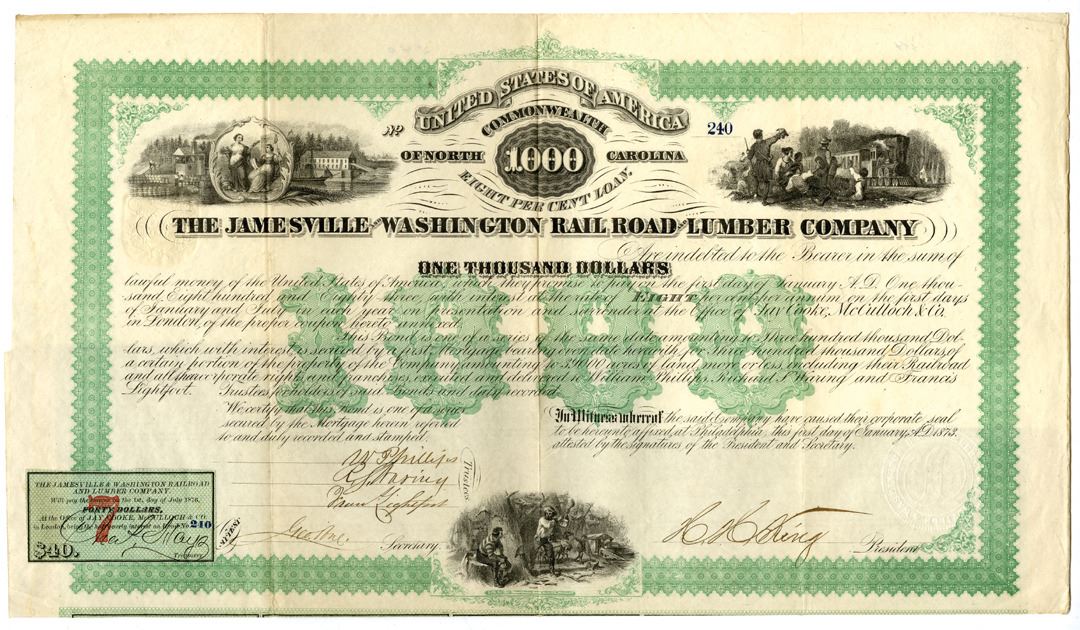 UNITED STATES OF AMERICA
COMMONWEALTH
No 240
OF NORTH 1000 CAROLINA
EIGHT PER CENT LOAN.
THE JAMESVILLE AND WASHINGTON RAIL ROAD AND LUMBER COMPANY
Are indebted to the Bearer in the sum of
ONE THOUSAND DOLLARS
lawful money of the United States of America which they to pay the first day of January A.D. One thou-
sand Eight hundred and Eighty three, with interest at the rate of EIGHT per cent per annum on the first days
of January and July each year on presentation and surrender at the Office of Jay Cooke, McCulloch & Co.
in London, of the proper coupon hereto annexed.
This Bond is one of a series of the same date amounting to Three hundred thousand Dol-
lars, which with interest is secured by a first Mortgage bearing even date herewith, for Three hundred thousand Dollars, of
a certain portion of the property of the Company, amounting to acres of land more or less, including their Railroad
and all their corporate rights and franchises, executed and delivered to William Phillips, Richard S. Waring and Francis
Lightfoot. Trustees for holders of said Bonds and duly recorded.
1888
We certify that this Bond is one of a series
secured by the Mortgage herein referred
to and duly recorded and stamped.
In Witness whereof the said Company have caused their corporate seal
to be hereunto affixed, at Philadelphia this first day of January A.D. 1873.
attested by the signatures of the President and Secretary.
W Phillips
R S Waring
Lightfoot
Trustees
ATTEST
Secretary.
President
THE JAMESVILLE & WASHINGTON RAILROAD
AND LUMBER COMPANY.
Will pay the Bearer on the 1st. day of July 1876,
FORTY DOLLARS,
At the Office of JAY COOKE, McCULLOCH & CO.
in London, being the half yearly interest on Bond No. 240
7
$40.
Treasurer